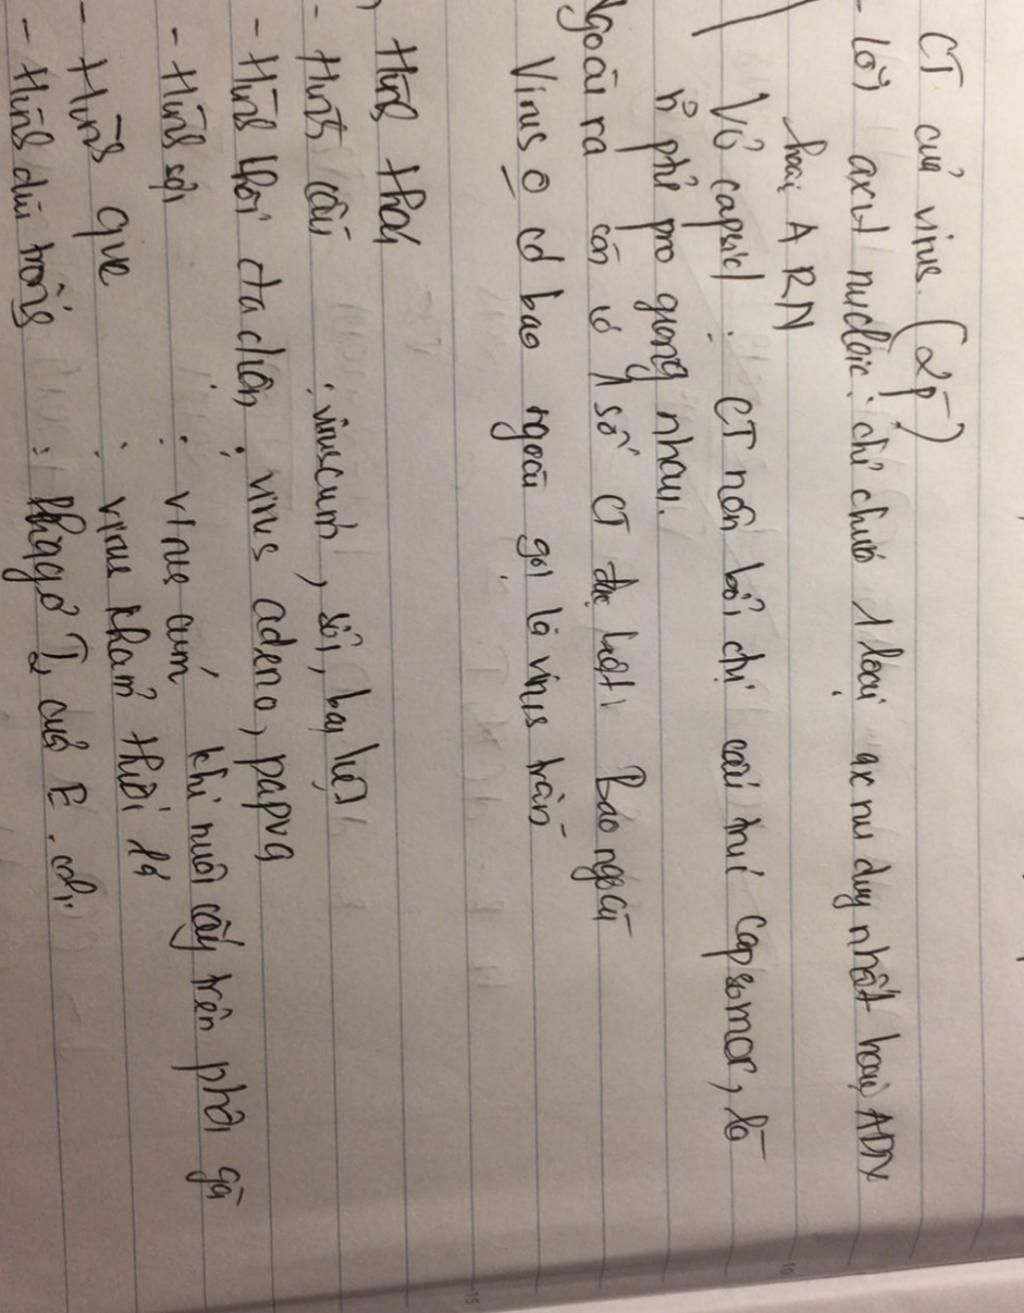 CT của virus. (2p)
- lõi axit nucleic : chỉ chứa 1 loại ax nu duy nhất hoặc ADN
hoặc ARN
Vỏ capsid : CT nên bởi chị cấu trúc capsomer, là
~ phẻ pro giống nhau.
Ngoài ra còn có 1 số CT đặc biệt Bao ngoài
Virus O có bao ngoài gọi là virus trần
Hình thái
- Hình cầu : virus cúm, sởi, bại liệt
- Hình khối đa diện : virus adeno, papva
- Hình sợi : virus cúm khi nuôi cấy trên phôi gà
- Hình que : virus khảm thuốc lá
- Hình đinh trống : phagơ T2 của E. coli